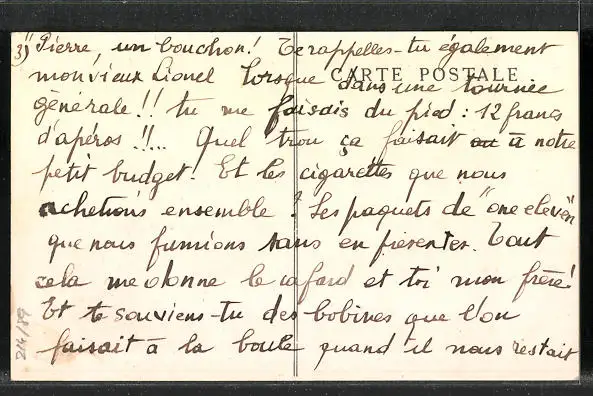 3) Pierre, un bouchon! Te rappelles-tu également
mon vieux Lionel lorsque dans une tournée
CARTE POSTALE
générale!! tu me faisais du pied: 12 francs
d'apéros!!... Quel trou ça faisait à notre
petit budget! Et les cigarettes que nous
achetions ensemble? Les paquets de "one eleven"
que nous fumions sans en présenter. Tout
cela me donne le cafard et toi mon frère!
Et te souviens-tu des bobines que l'on
faisait à la boule quand il nous restait
214/89